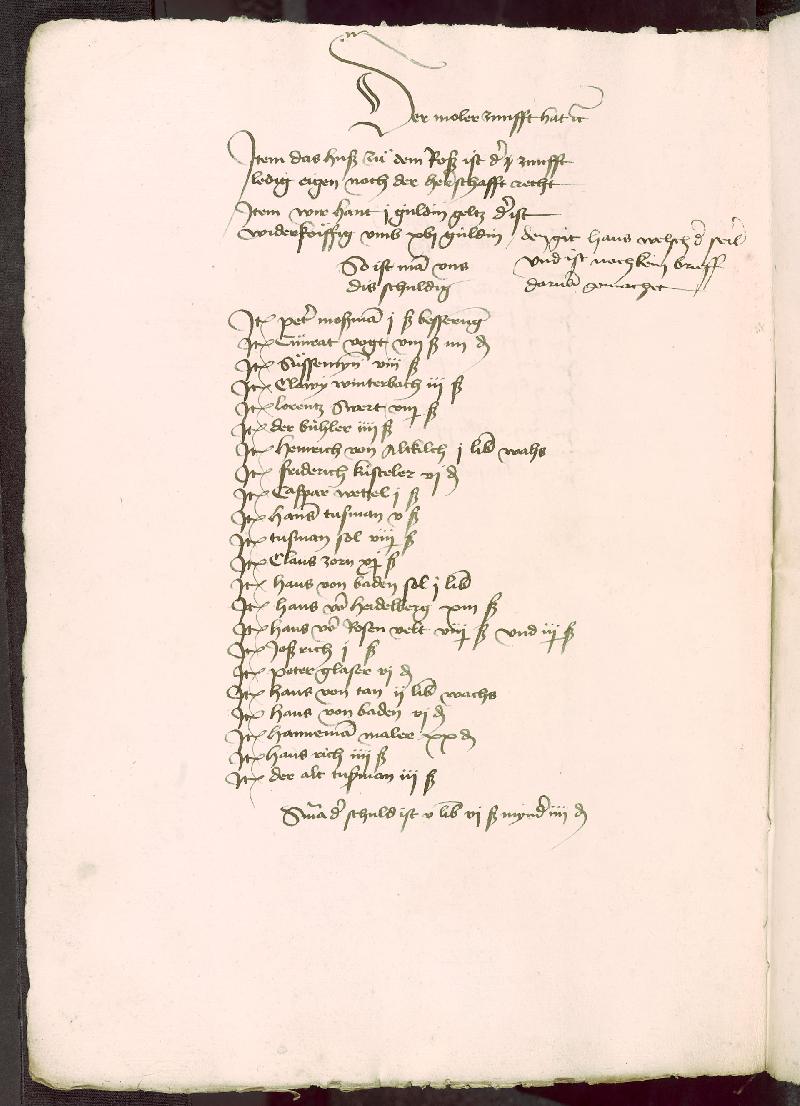 Der moler zunfft hat
Item das huß zu dem Roß ist d' zunfft
ledig eigen noch der herschafft recht
Item wir hant j guldin geltz d' ist
widerkoiffig vmb xvj guldin den git hans welsch d' seil'
vnd ist noch kein brieff
darub' gemachet
So ist mā vns
dis schuldig
Itē pet' moßmā j ß besserūg
Itē Cunrat vogt viij ß iiij d
Itē Süssemyn viij ß
Itē Clawy winterbach iij ß
Itē lorentz Swert viij ß
Itē der bühler iiij ß
Itē heinrich von Altkilch j lib wahs
Itē friderich küsteler vj d
Itē Caspar wetzel j ß
Itē hans tusman v ß
Itē tusman sol viij ß
Itē Claus zorn xj ß
Itē hans von baden sol j lib
Itē hans vō heidelberg xiij ß
Itē hans vō Rosen velt viij ß vnd iij ß
Itē Joß rich j ß
Itē peter glaser vj d
Itē hans von tan ij lib wachs
Itē hans von baden vj d
Itē hannemā maler xx d
Itē hans rich iiij ß
Itē der alt tusman iij ß
Sūma d' schuld ist v lib vj ß mynd' iiij d